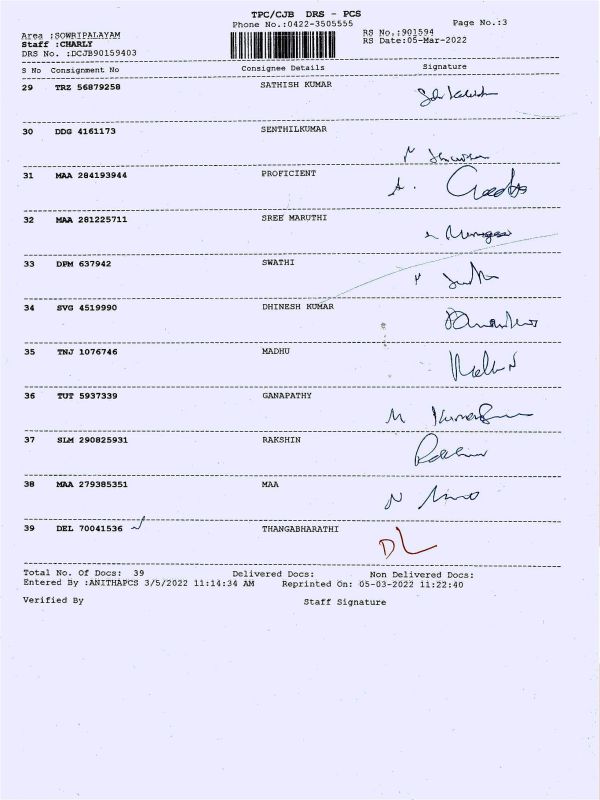 TPC/CJB DRS - PCS
Phone No.:0422-3505555
Page No.:3
Area :SOWRIPALAYAM
Staff :CHARLY
DRS No. :DCJB90159403
RS No.:901594
RS Date:05-Mar-2022
S No Consignment No Consignee Details Signature
29 TRZ 56879258 SATHISH KUMAR
30 DDG 4161173 SENTHILKUMAR
31 MAA 284193944 PROFICIENT
32 MAA 281225711 SREE MARUTHI
33 DPM 637942 SWATHI
34 SVG 4519990 DHINESH KUMAR
35 TNJ 1076746 MADHU
36 TUT 5937339 GANAPATHY
37 SLM 290825931 RAKSHIN
38 MAA 279385351 MAA
39 DEL 70041536 THANGABHARATHI
DL
Total No. Of Docs: 39 Delivered Docs: Non Delivered Docs:
Entered By :ANITHAPCS 3/5/2022 11:14:34 AM Reprinted On: 05-03-2022 11:22:40
Verified By Staff Signature